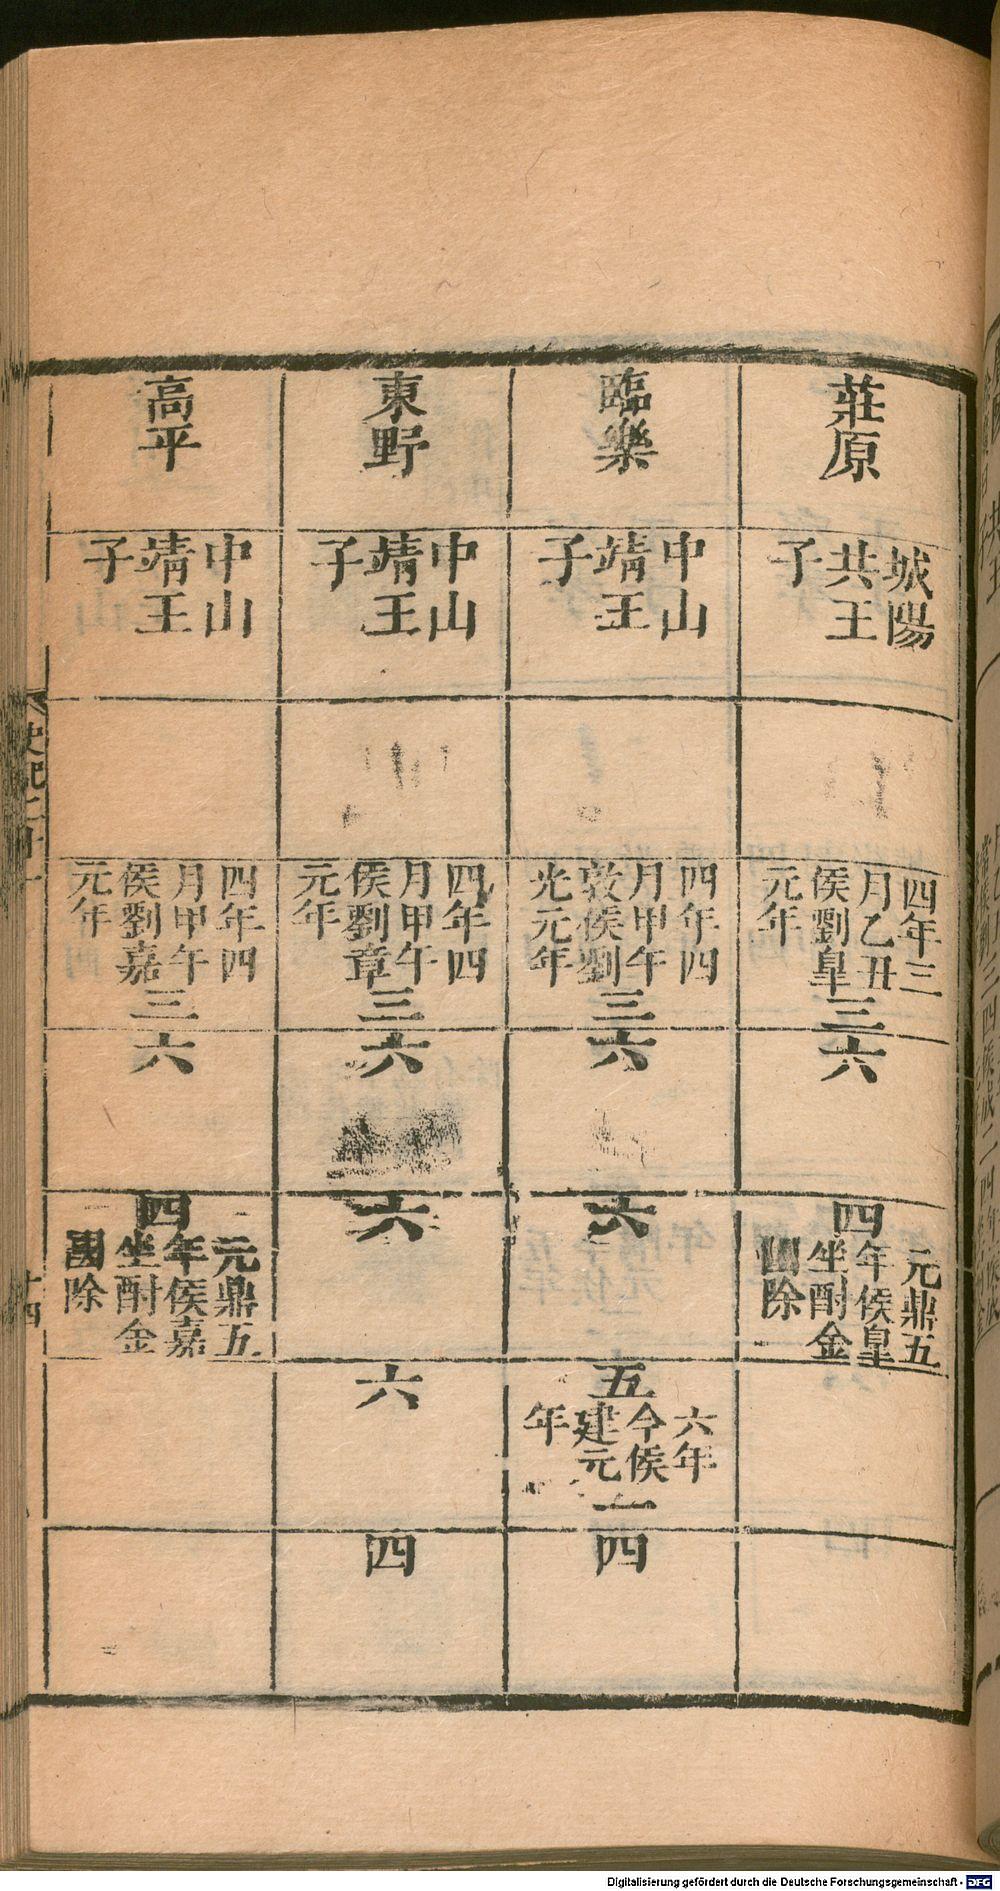 莊原
城陽
共王
子
四年三
月乙丑
侯劉皐
元年
三
六
四
元鼎五
年侯皐
坐酎金
國除
臨樂
中山
靖王
子
四年四
月甲午
敦侯劉
光元年
三
六
六
五
六年
今侯
建元
年
一
四
東野
中山
靖王
子
四年四
月甲午
侯劉章
元年
三
六
六
六
四
高平
中山
靖王
子
四年四
月甲午
侯劉嘉
元年
三
六
四
元鼎五
年侯嘉
坐酎金
國除
史記二十一
十四
Digitalisierung gefördert durch die Deutsche Forschungsgemeinschaft - DFG